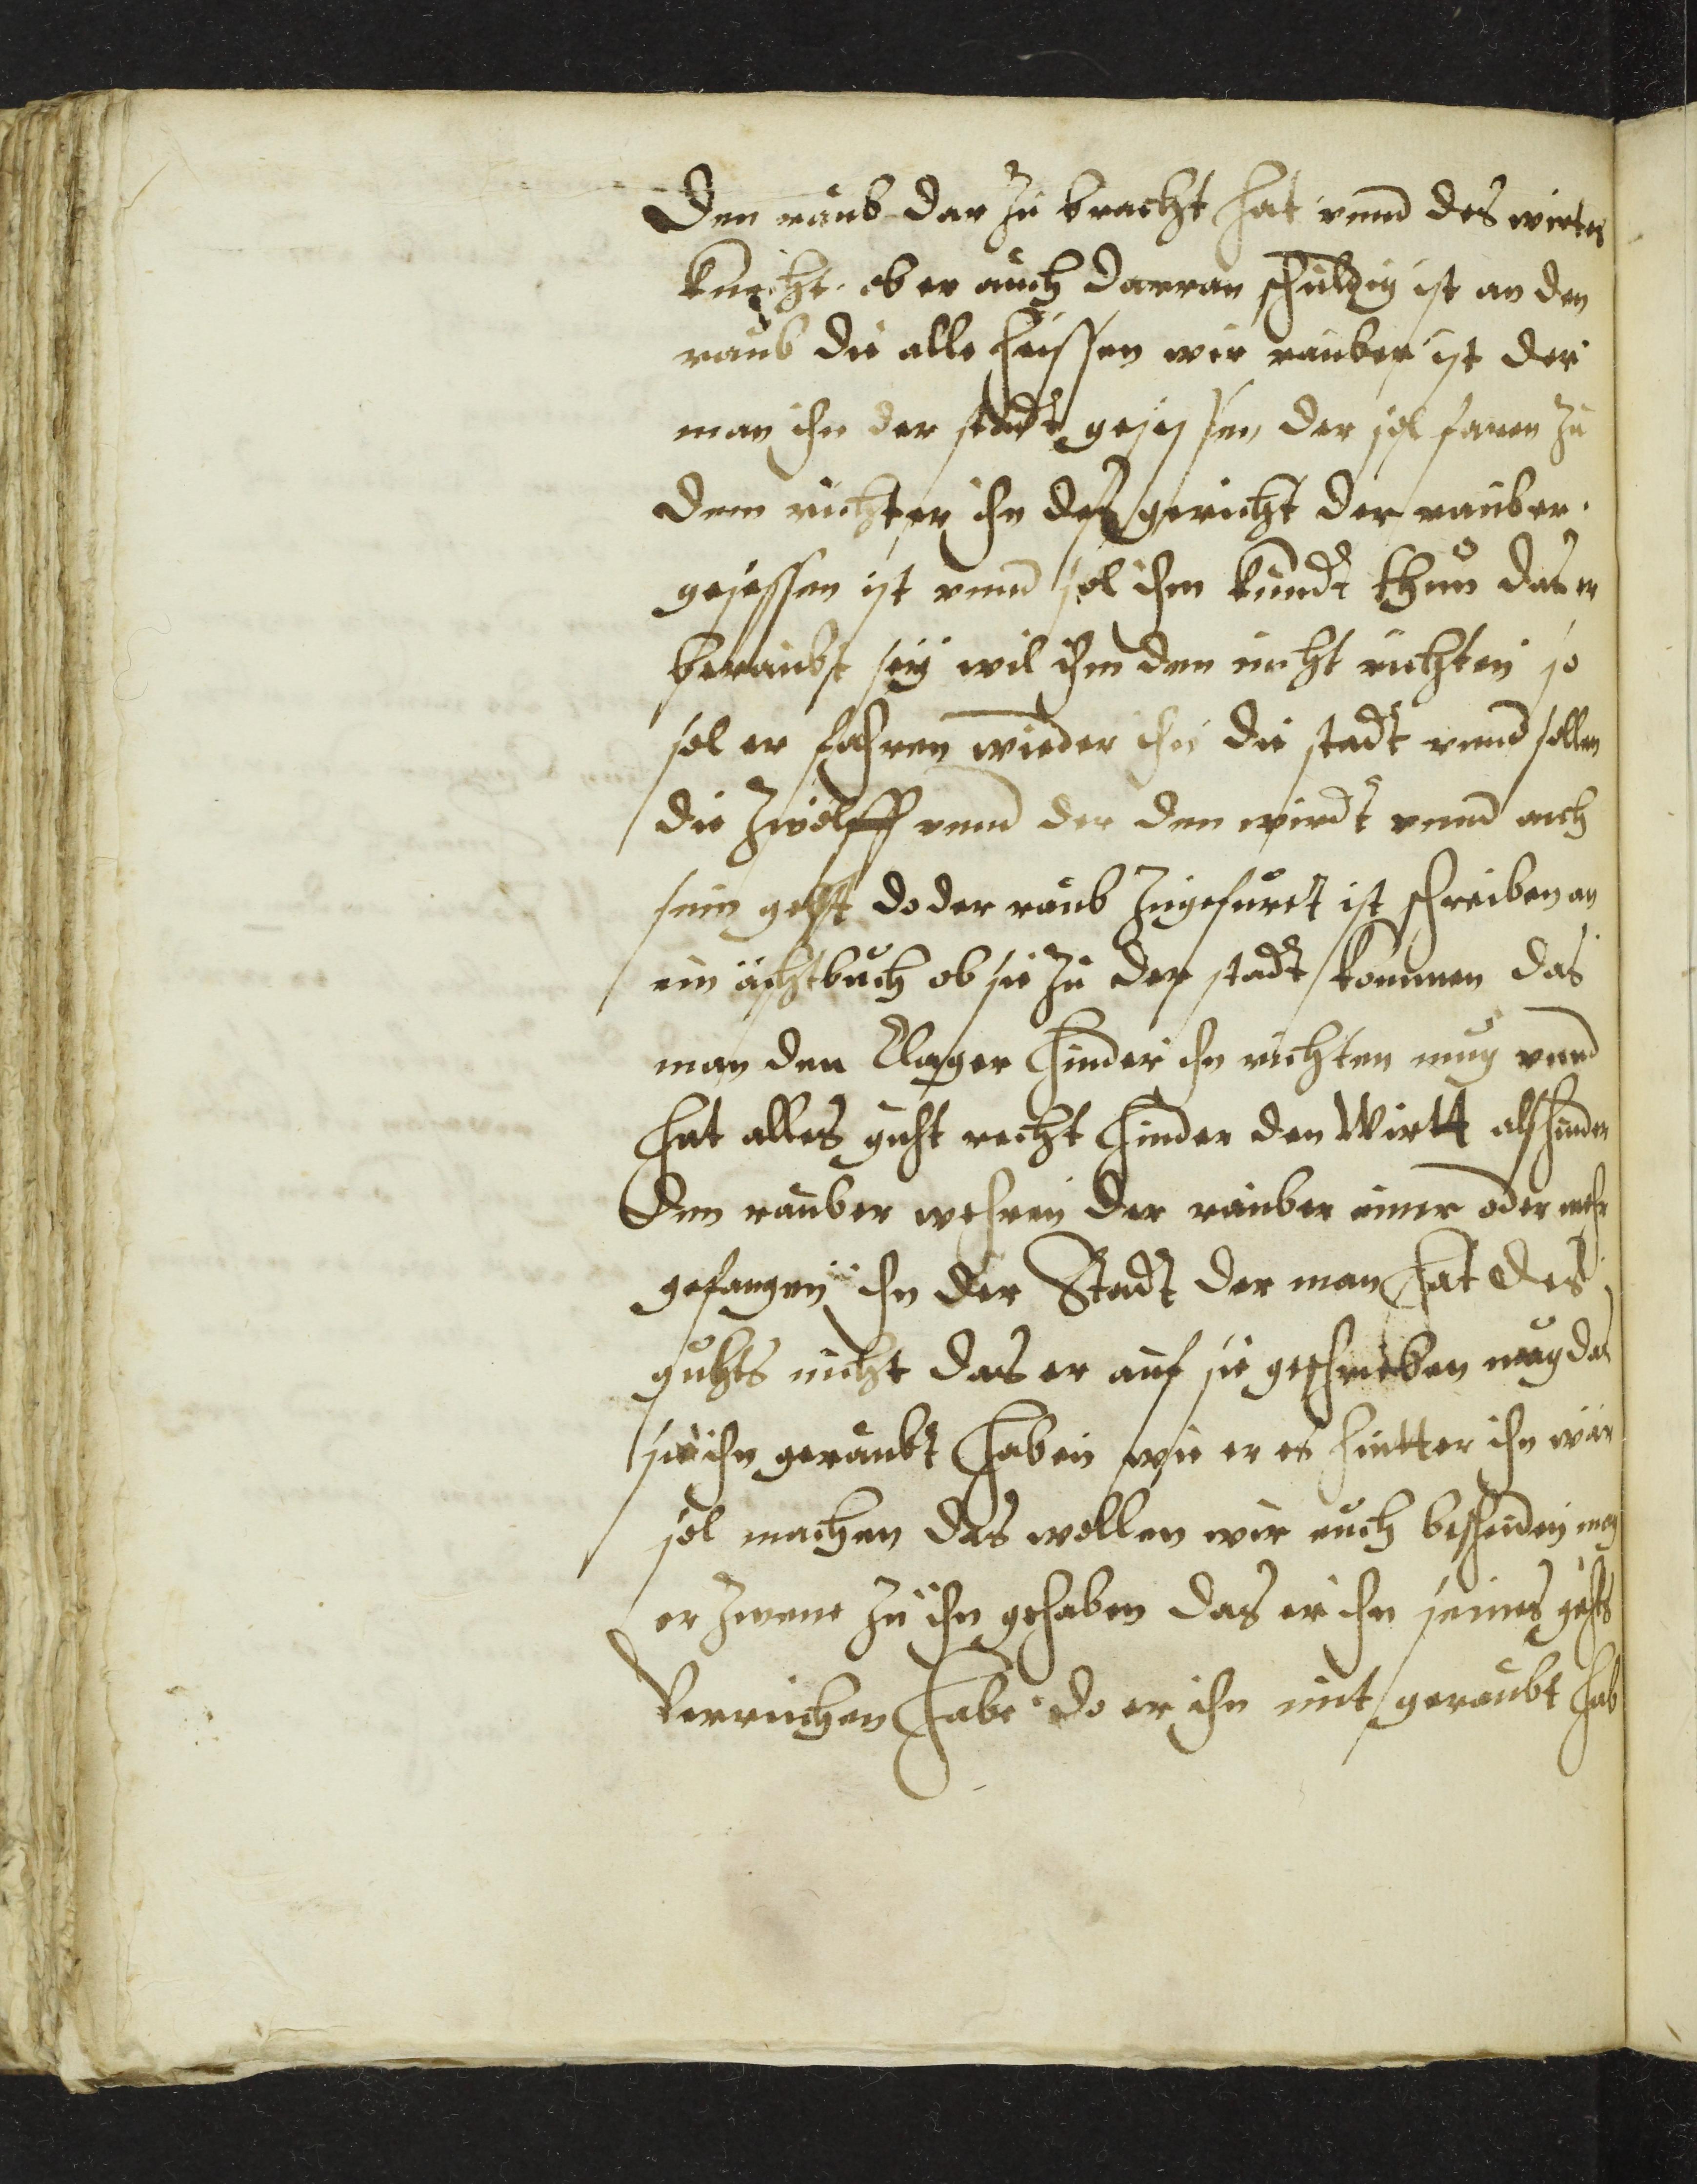 Den raub dar zu bracht hat vnnd des wirtes
knecht ob er auch darran schuldig ist an den
raub die alle heissen wir rauber ist der
man ihn der stadt gesessen der sol faren zu
dem richter ihn des gericht der rauber
gesessen ist vnnd sol ihm kundt thun das er
beraubt sey wil ihm den nicht richten so
sol er fahren wieder ihn die stadt vnnd sollen
die zwölff vnnd der den wirdt vnnd auch
sein gelst do der raub zugefurtt ist schreiben an
ein ächtbuch ob sie zu der stadt kommen das
man den Clager hinder ihn richten mug vnnd
hat alles guht recht hinder den Wirtt als hinder
den rauber wehren der rauber einer oder mehr
gefangen ihn der Stadt der man hat des
guhts nicht das er auf sie geschrieben mug das
sie ihn geraubt haben wie er es hintter ihn wär
sol machen das wollen wir euch bescheiden mag
er zwene zu ihn gehaben das er ihn seines gehts
verrichen habe do er ihn mit geraubt hab